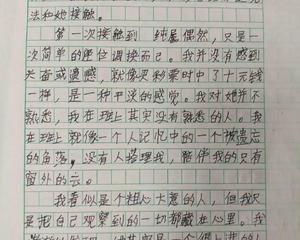 法和她接触。
第一次接触到 纯属偶然，只是一
次简单的座位调换而已。我并没有感到
失面或遗憾，就像买彩票时中了十元钱
一样，是一种平淡的感觉。我对她并不
熟悉，我在班上其实没有熟悉的人。我
在班上就像一个人记忆中的一个被遗忘
的角落，没有人搭理我，陪伴我的只有
窗外的云。
我看似是个粗心大意的人，但我只
是把自己观察到的一切都藏在心里。我